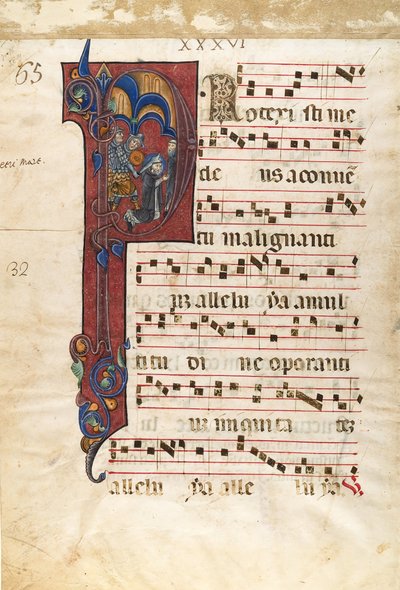 XXXVI
65
P Rotexisti me
etri Mart.
de us a conuē
tu malignanti
32
uz allelu ya a mul
titu di ne operanti
uz iniquita tez
allelu ya alle lu ya. V.